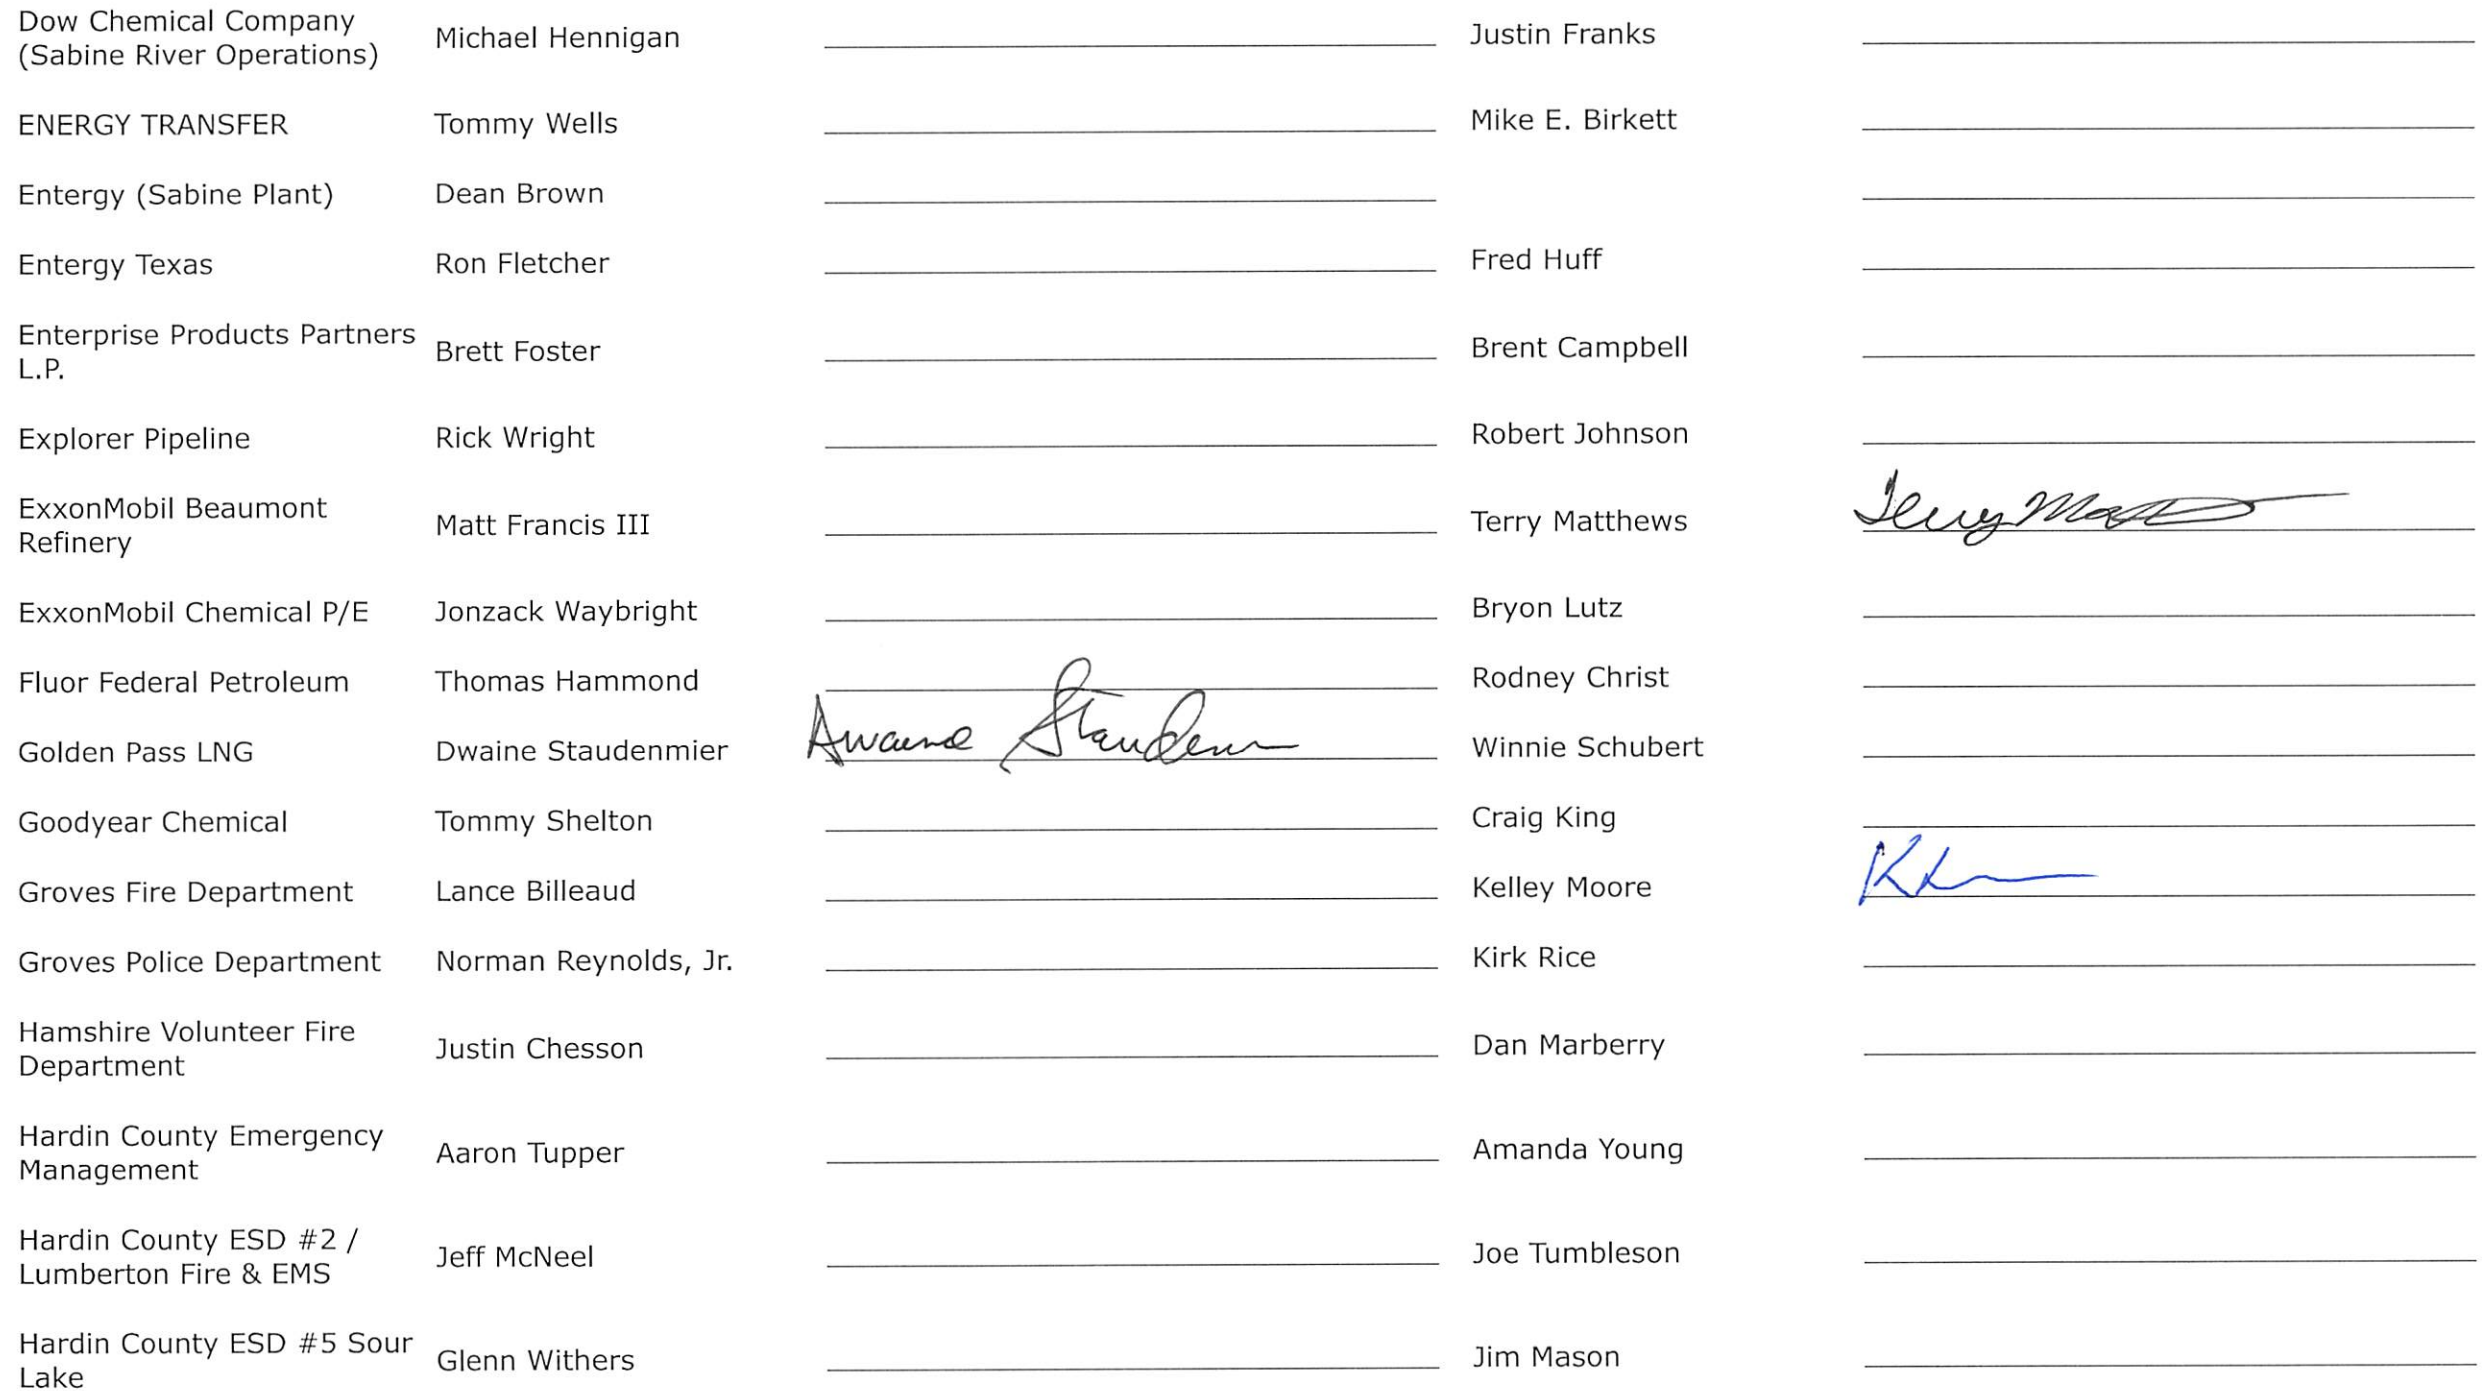 Dow Chemical Company
(Sabine River Operations) Michael Hennigan Justin Franks
ENERGY TRANSFER Tommy Wells Mike E. Birkett
Entergy (Sabine Plant) Dean Brown
Entergy Texas Ron Fletcher Fred Huff
Enterprise Products Partners
L.P. Brett Foster Brent Campbell
Explorer Pipeline Rick Wright Robert Johnson
ExxonMobil Beaumont
Refinery Matt Francis III Terry Matthews Terry Matt
ExxonMobil Chemical P/E Jonzack Waybright Bryon Lutz
Fluor Federal Petroleum Thomas Hammond Rodney Christ
Golden Pass LNG Dwaine Staudenmier Dwaine Staudenm Winnie Schubert
Goodyear Chemical Tommy Shelton Craig King
Groves Fire Department Lance Billeaud Kelley Moore
Groves Police Department Norman Reynolds, Jr. Kirk Rice
Hamshire Volunteer Fire
Department Justin Chesson Dan Marberry
Hardin County Emergency
Management Aaron Tupper Amanda Young
Hardin County ESD #2 /
Lumberton Fire & EMS Jeff McNeel Joe Tumbleson
Hardin County ESD #5 Sour
Lake Glenn Withers Jim Mason